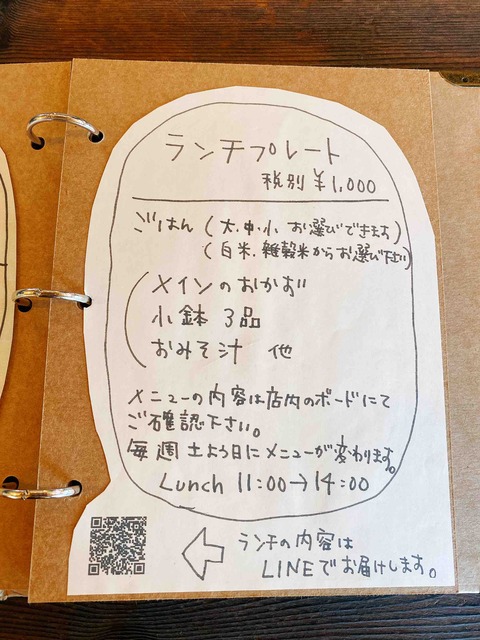 ランチプレート
税別 ¥1,000
ごはん (大.中.小 お選びできます)
(白米.雑穀米からお選び下さい)
メインのおかず
小鉢 3品
おみそ汁 他
メニューの内容は店内のボードにて
ご確認下さい。
毎週土よう日にメニューが変わります。
Lunch 11:00→14:00
ランチの内容は
LINEでお届けします。